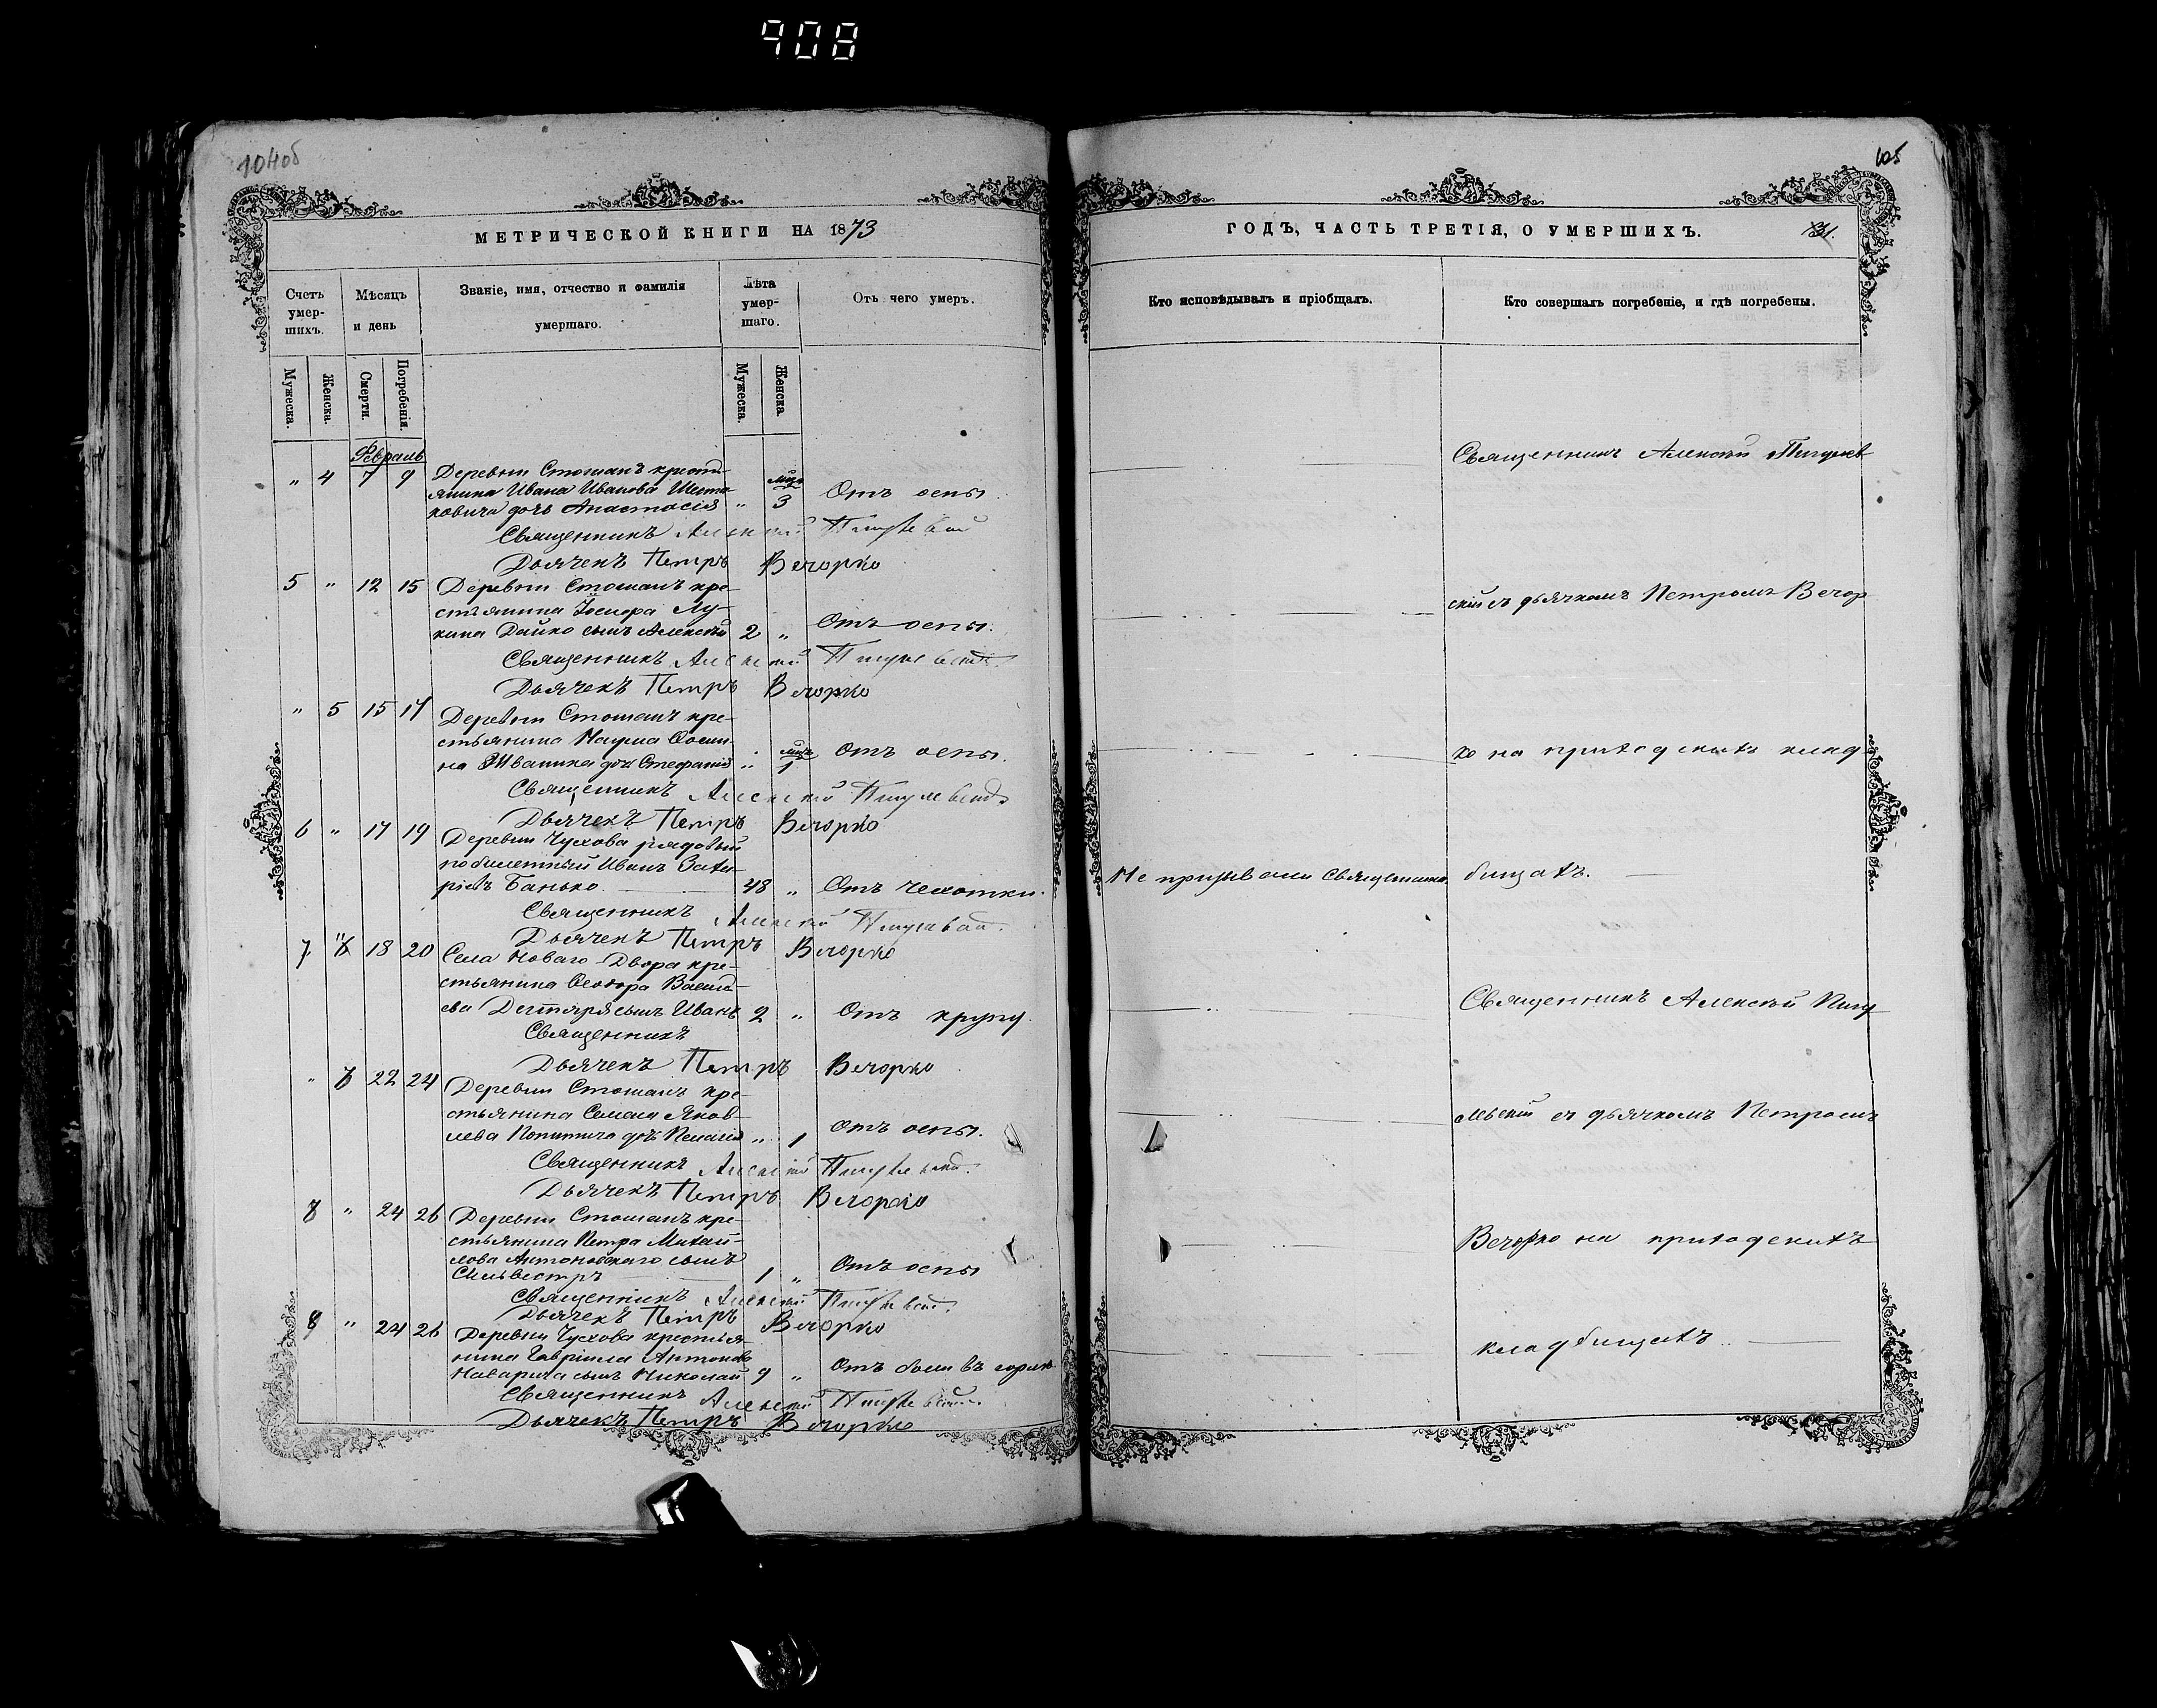 908
104об
МЕТРИЧЕСКОЙ КНИГИ НА 1873
Счетъ умершихъ.
Мѣсяцъ и день
Званіе, имя, отчество и фамилія умершаго.
Лѣта умершаго.
Отъ чего умеръ.
Мужеска.
Женска.
Смерти.
Погребенія.
Мужеска.
Женска.
Февраль
" 4 7 9 Деревни Стошанъ крестья-
янина Ивана Иванова Шета-
ковича дочь Анастасія " 3 Отъ оспы.
Священникъ Алексѣй
Дьячекъ Петръ Вечорко
5 " 12 15 Деревни Стошанъ кре-
стьянина Іосифа Лу-
кина Дайко сынъ Алексѣй 2 " Отъ оспы.
Священникъ Алексѣй
Дьячекъ Петръ Вечорко
" 5 15 17 Деревни Стошанъ кре-
стьянина Наума
на Иваника дочь Стефанія " 1 Отъ оспы.
Священникъ Алексѣй
Дьячекъ Петръ Вечорко
6 " 17 19 Деревни Чухова рядовый
побилетный Иванъ Заха-
ріевъ Банько 48 " Отъ чехотки.
Священникъ Алексѣй
Дьячекъ Петръ Вечорко
7 " 18 20 Села Новаго-Двора кре-
стьянина Ѳеодора Васи-
ева Дегтяря сынъ Иванъ 2 " Отъ крупу.
Священникъ
Дьячекъ Петръ Вечорко
" 22 24 Деревни Стошанъ кре-
стьянина Семена Яков-
лева Копитича дочь Пелагія " 1 Отъ оспы.
Священникъ Алексѣй
Дьячекъ Петръ Вечорко
" 24 26 Деревни Стошанъ кре-
стьянина Петра Михай-
лова Антоновскаго сынъ
Сильвестръ 1 " Отъ оспы
Священникъ Алексѣй
Дьячекъ Петръ Вечорко
" 24 26 Деревни Чухова крестья-
нина Гавріила Антонова
Наварича сынъ Николай 9 " Отъ боли въ горлѣ
Священникъ Алексѣй
Дьячекъ Петръ Вечорко
105
ГОДЪ, ЧАСТЬ ТРЕТІЯ, О УМЕРШИХЪ.
Кто исповѣдывалъ и пріобщалъ.
Кто совершалъ погребеніе, и гдѣ погребены.
Священникъ Алексѣй
скій съ дьячкомъ Петромъ Вечор
ко на приходскихъ клад
Не призывали священника.
бищахъ.
Священникъ Алексѣй
съ дьячкомъ Петромъ
Вечорко на приходскихъ
кладбищахъ.